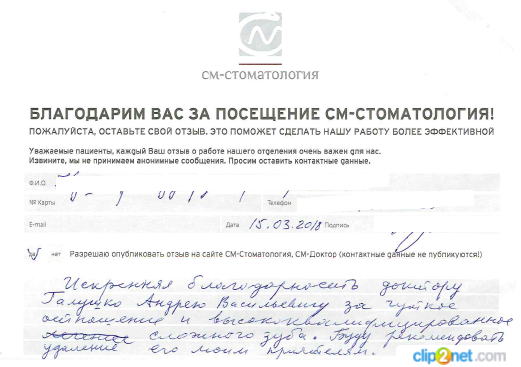 СМ-СТОМАТОЛОГИЯ
БЛАГОДАРИМ ВАС ЗА ПОСЕЩЕНИЕ СМ-СТОМАТОЛОГИЯ!
ПОЖАЛУЙСТА, ОСТАВЬТЕ СВОЙ ОТЗЫВ. ЭТО ПОМОЖЕТ СДЕЛАТЬ НАШУ РАБОТУ БОЛЕЕ ЭФФЕКТИВНОЙ
Уважаемые пациенты, каждый Ваш отзыв о работе нашего отделения очень важен для нас.
Извините, мы не принимаем анонимные сообщения. Просим оставить контактные данные.
Ф.И.О.
№ Карты Телефон
E-mail Дата 15.03.2018 Подпись
да нет Разрешаю опубликовать отзыв на сайте СМ-Стоматология, СМ-Доктор (контактные данные не публикуются!)
Искренняя благодарность доктору
Галушко Андрею Васильевичу за чуткое
отношение и высококвалифицированное
лечение сложного зуба. Буду рекомендовать
удаление его моим приятелям.
clip2net.com